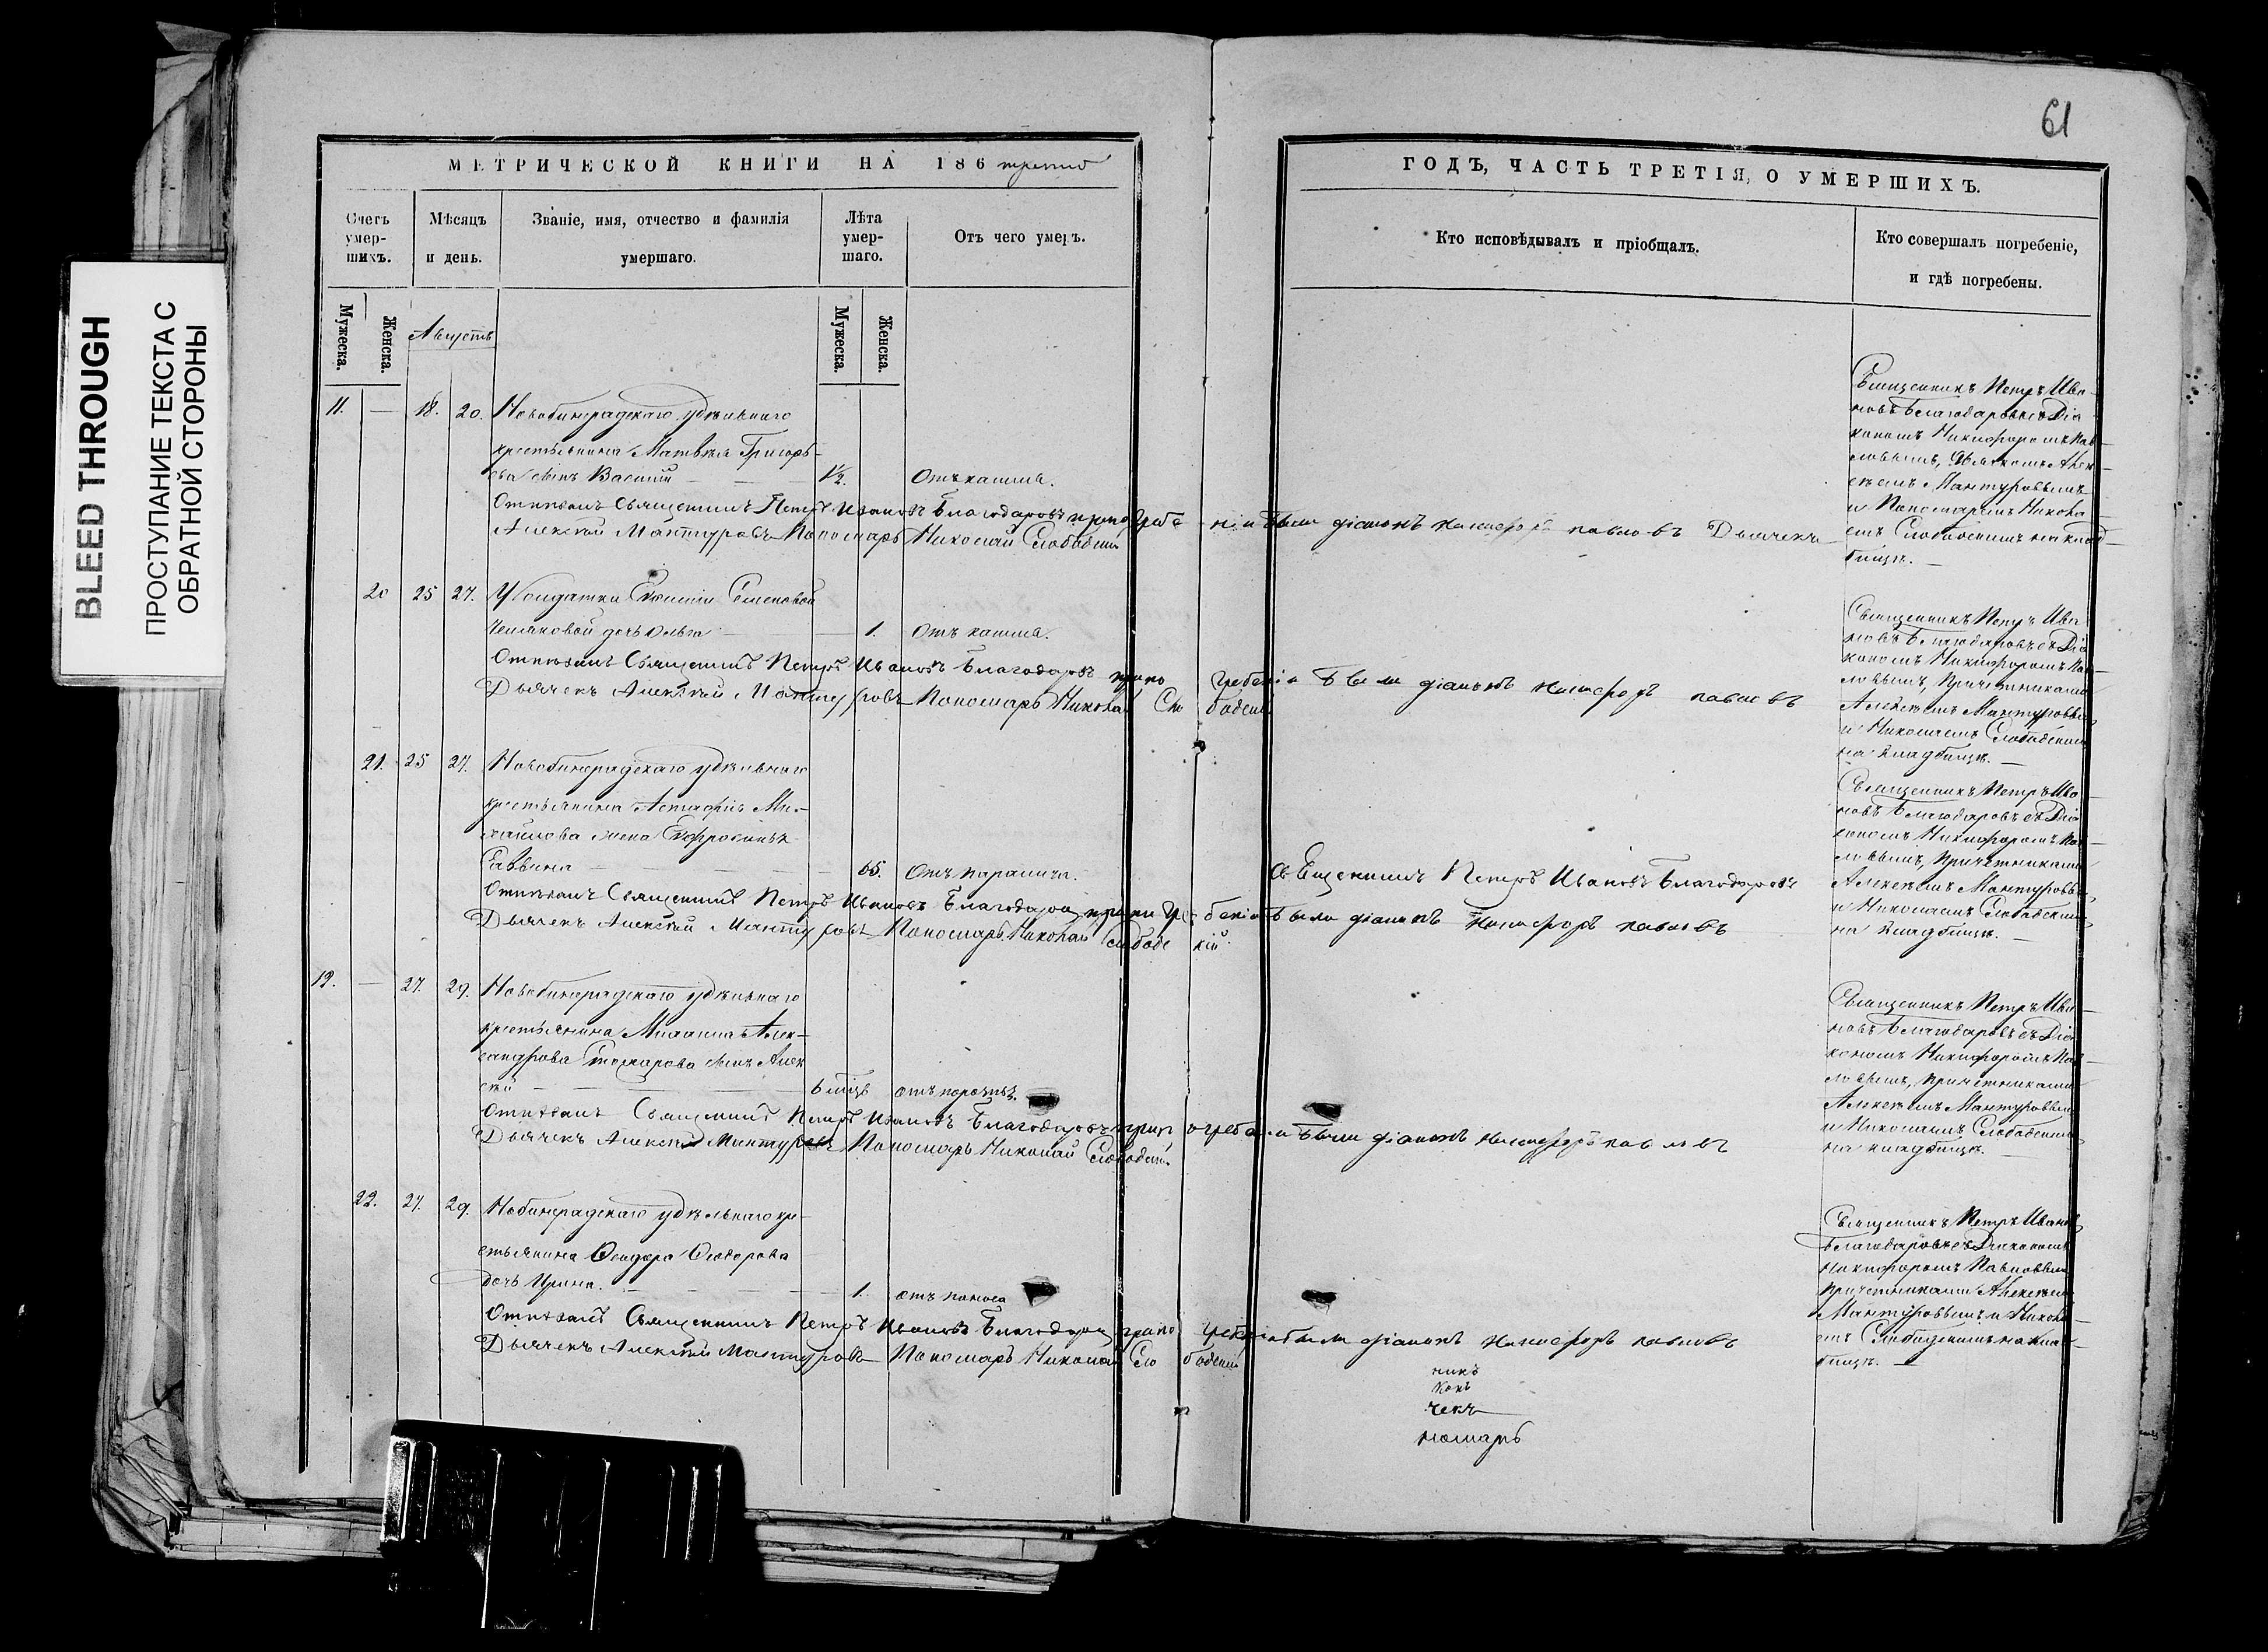 61
BLEED THROUGH
ПРОСТУПАНИЕ ТЕКСТА С
ОБРАТНОЙ СТОРОНЫ
МЕТРИЧЕСКОЙ КНИГИ НА 186
ГОДЪ, ЧАСТЬ ТРЕТІЯ, О УМЕРШИХЪ.
Счетъ умер-шихъ.
Мѣсяцъ и день.
Званіе, имя, отчество и фамилія умершаго.
Лѣта умер-шаго.
Отъ чего умеръ.
Кто исповѣдывалъ и пріобщалъ.
Кто совершалъ погребеніе,
и гдѣ погребены.
Мужеска.
Женска.
Августъ
Мужеска.
Женска.
11. — 18. 20. удѣльнаго
крестьянина Матвѣя Григорь-
ева сынъ Василій — 1/2. Отъ кашля.
Отпѣвалъ Священникъ Петръ Ивановъ Благодаровъ при погребе-ніи были діаконъ Никифоръ Павловъ Дьячекъ
Алексей Мантуровъ Пономарь Николай Слободскій
Священникъ Петръ Ива-
новъ Благодаровъ съ Діа-
кономъ Никифоромъ Пав-
ловымъ, Дьячкомъ Алек-
сѣемъ Мантуровымъ
и Пономаремъ Никола-
емъ Слободскимъ на клад-
бищѣ. —
20 25 27. Солдатки Семеновой
дочь Ольга — 1. Отъ кашля.
Отпѣвалъ Священникъ Петръ Ивановъ Благодаровъ при погребеніи были діаконъ Никифоръ Павловъ
Дьячекъ Алексѣй Мантуровъ Пономарь Николай Слободскій
Священникъ Петръ Ива-
новъ Благодаровъ съ Діа-
кономъ Никифоромъ Пав-
ловымъ, Причетниками
Алексѣемъ Мантуровымъ
и Николаемъ Слободскимъ
на кладбищѣ. —
21. 25 27. удѣльнаго
крестьянина Астафія Ми-
хайлова жена Евфросинья
Саввина — 65. Отъ паралича.
Священникъ Петръ Ивановъ Благодаровъ
Отпѣвалъ Священникъ Петръ Ивановъ Благодаровъ при погребеніи были діаконъ Никифоръ Павловъ
Дьячекъ Алексѣй Мантуровъ Пономарь Николай Слободскій.
Священникъ Петръ Ива-
новъ Благодаровъ съ Діа-
кономъ Никифоромъ Пав-
ловымъ, Причетниками
Алексѣемъ Мантуровымъ
и Николаемъ Слободскимъ
на кладбищѣ. —
12. — 27. 29. удѣльнаго
крестьянина Михаила Алек-
сандрова сынъ Алек
сѣй — 6 отъ
Отпѣвалъ Священникъ Петръ Ивановъ Благодаровъ при погребеніи были діаконъ Никифоръ Павловъ
Дьячекъ Алексей Мантуровъ Пономарь Николай Слободскій
Священникъ Петръ Ива-
новъ Благодаровъ съ Діа-
кономъ Никифоромъ Пав-
ловымъ, причетниками
Алексѣемъ Мантуровымъ
и Николаемъ Слободскимъ
на кладбищѣ. —
22. 27. 29. удѣльнаго кре-
стьянина Ѳедора Ѳедорова
дочь Ирина. — 1. отъ поноса
Отпѣвалъ Священникъ Петръ Ивановъ Благодаровъ при погребеніи были діаконъ Никифоръ Павловъ
Дьячекъ Алексѣй Мантуровъ Пономарь Николай Слободскій
Священникъ Петръ Ивановъ
Благодаровъ съ Діакономъ
Никифоромъ Павловымъ
причетниками Алексѣемъ
Мантуровымъ и Никола-
емъ Слободскимъ на клад-
бищѣ. —
никъ
конъ
чекъ
номарь